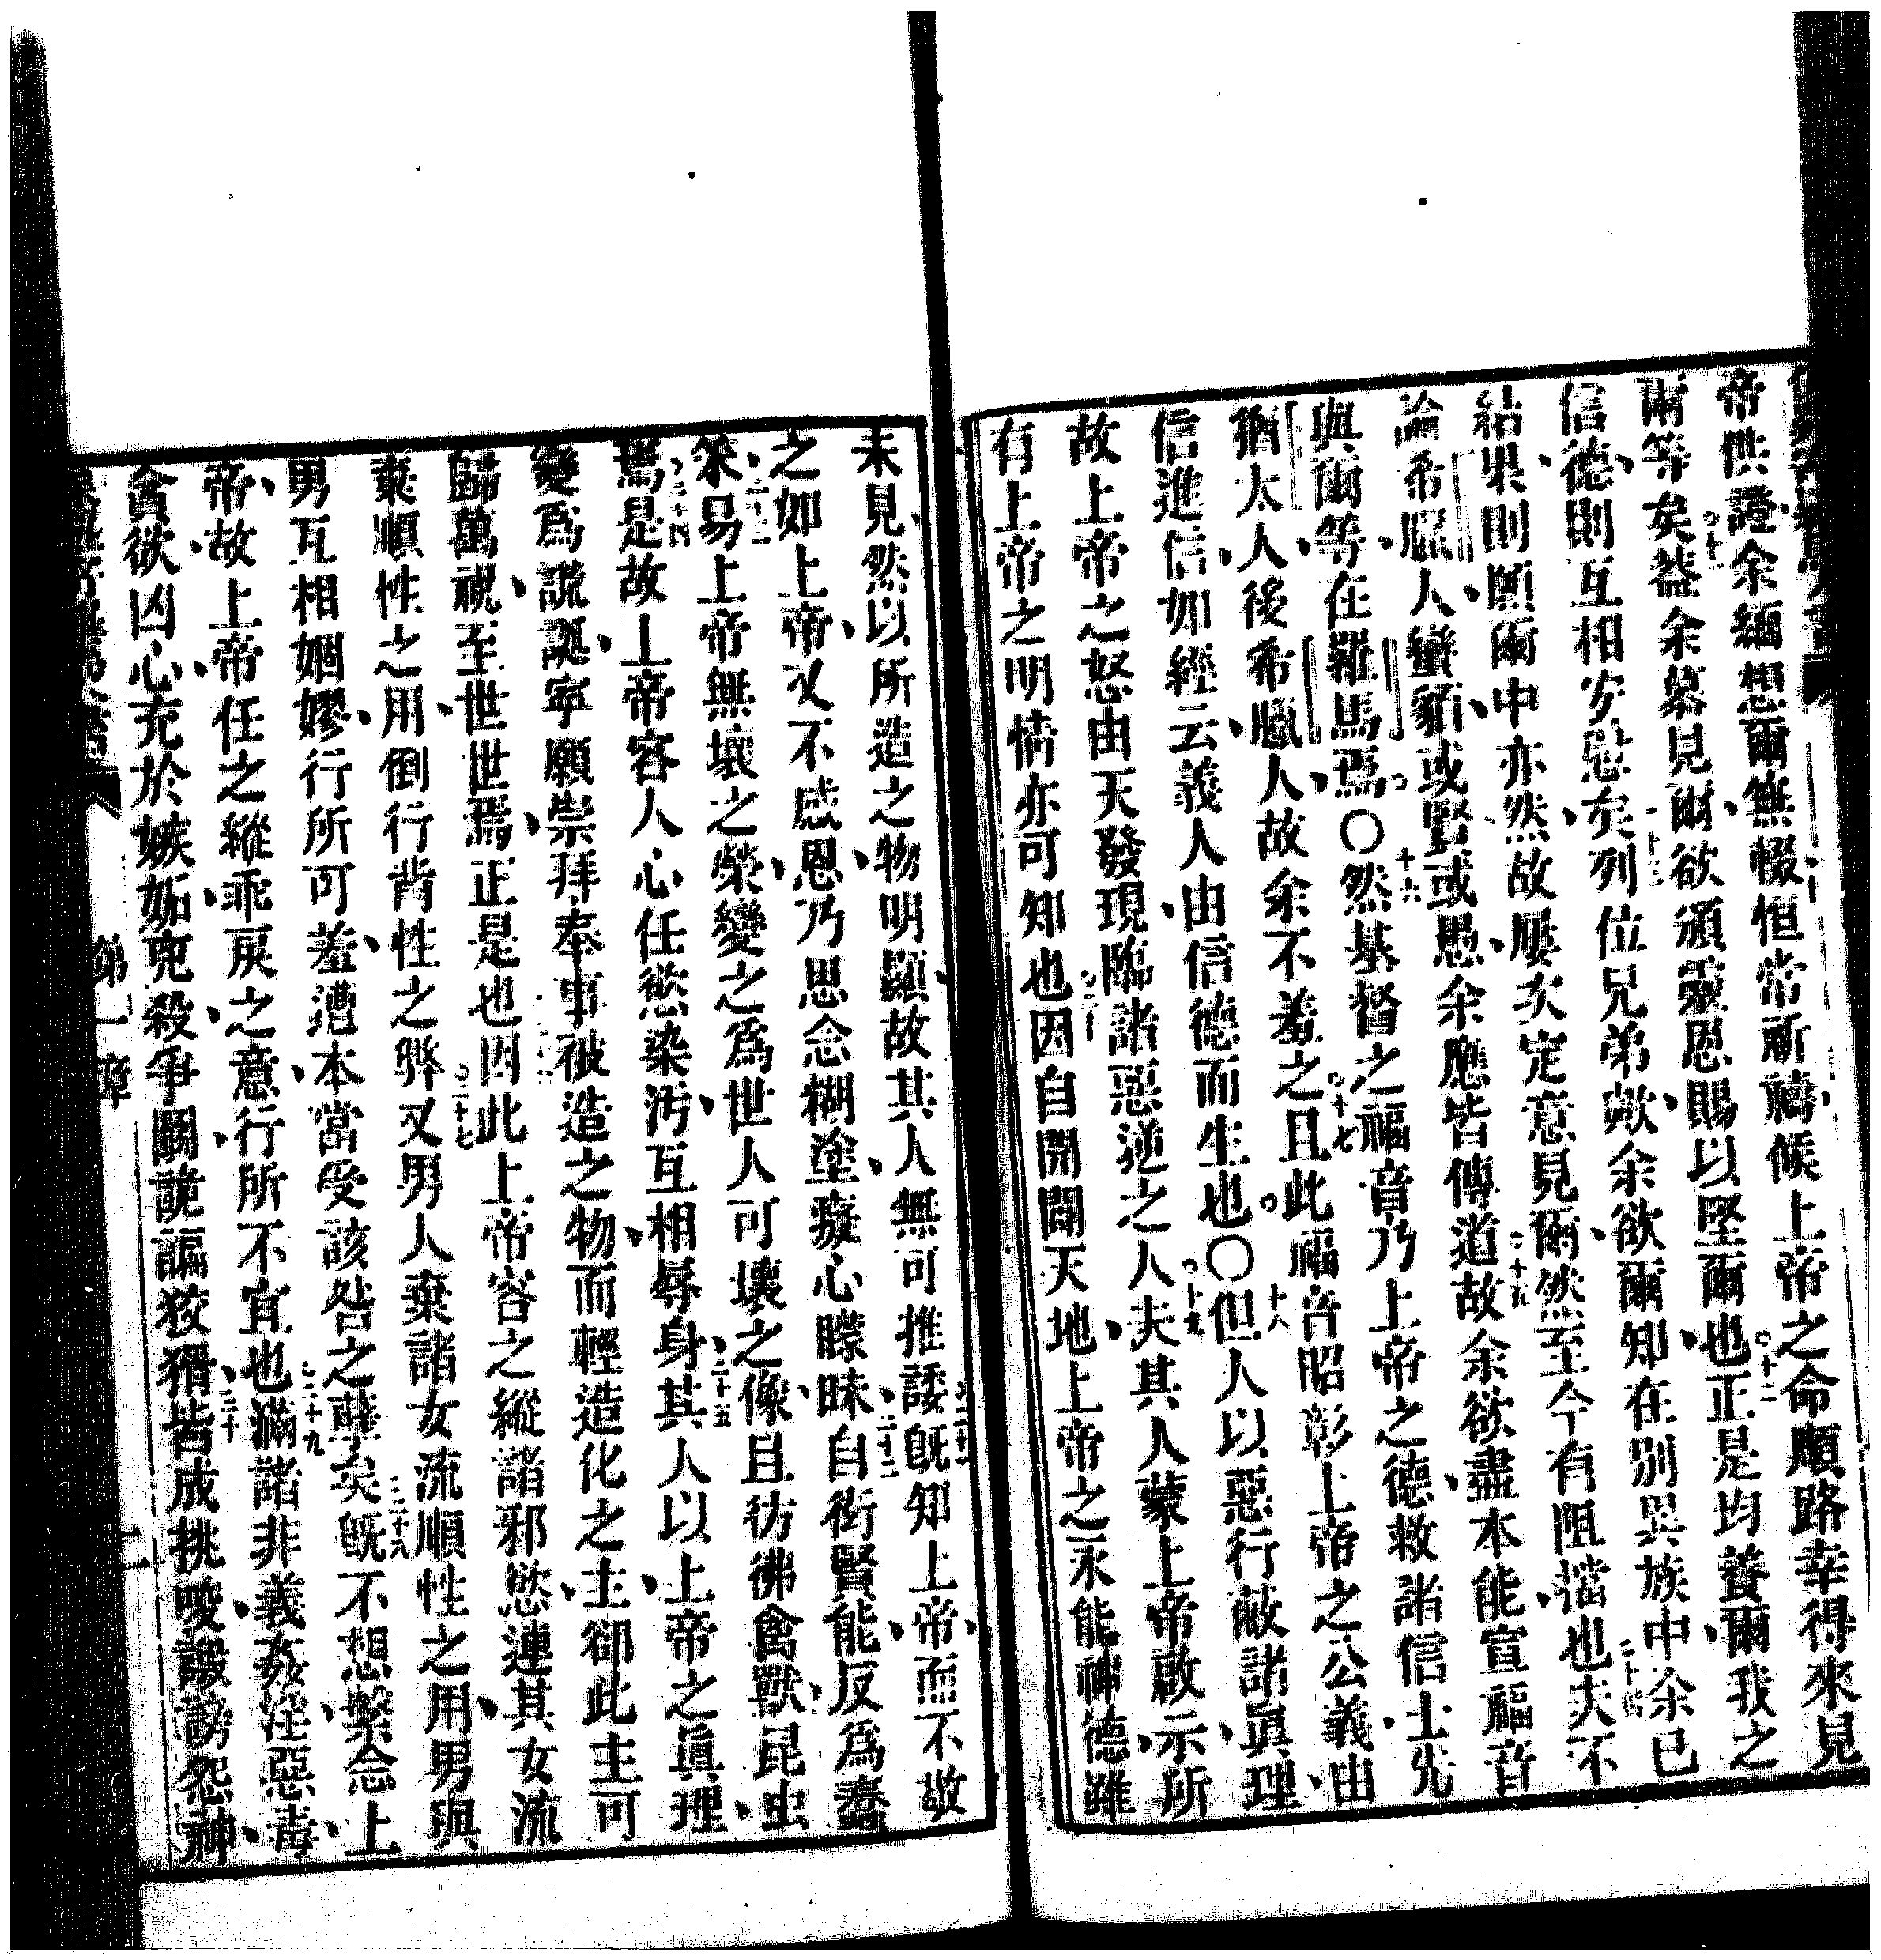 帝供證余緬想爾無輟恒常祈禱候上帝之命順路幸得來見
爾等矣○十一蓋余慕見爾欲頒靈恩賜以堅爾也○十二正是均養爾我之
信德則互相安慰矣十三列位兄弟歟余欲爾知在別異族中余已
結果則願爾中亦然故屢次定意見爾然至今有阻擋也二十四夫不
論希臘人蠻貊或賢或愚余應皆傳道○十五故余欲盡本能宣福音
與爾等在羅馬焉○十六然基督之福音乃上帝之德救諸信士先
猶太人後希臘人故余不羞之○十七且此福音昭彰上帝之公義由
信進信如經云義人由信德而生也○十八但人以惡行蔽諸眞理
故上帝之怒由天發現臨諸惡逆之人○十九夫其人蒙上帝啟示所
有上帝之明情亦可知也○二十因自開闢天地上帝之永能神德雖
未見然以所造之物明顯故其人無可推諉○二十一旣知上帝而不敬
之如上帝又不感恩乃思念糊塗癡心矇昧二十二自衒賢能反爲蠢
笨二十三易上帝無壞之榮變之爲世人可壞之像且彷彿禽獸昆虫
焉二十四是故上帝容人心任慾染汚互相辱身二十五其人以上帝之眞理
變爲謊誕寧願崇拜奉事被造之物而輕造化之主卻此主可
歸萬祝至世世焉正是也二十六因此上帝容之縱諸邪慾連其女流
棄順性之用倒行背性之弊○二十七又男人棄諸女流順性之用男與
男互相婟嫪行所可羞遭本當受該咎之孽矣二十八旣不想繫念上
帝故上帝任之縱乖戾之意行所不宜也二十九滿諸非義姦淫惡毒
貪欲凶心充於嫉妬兇殺爭鬭詭譎狡猾三十皆成挑唆譭謗怨神
第一章 二